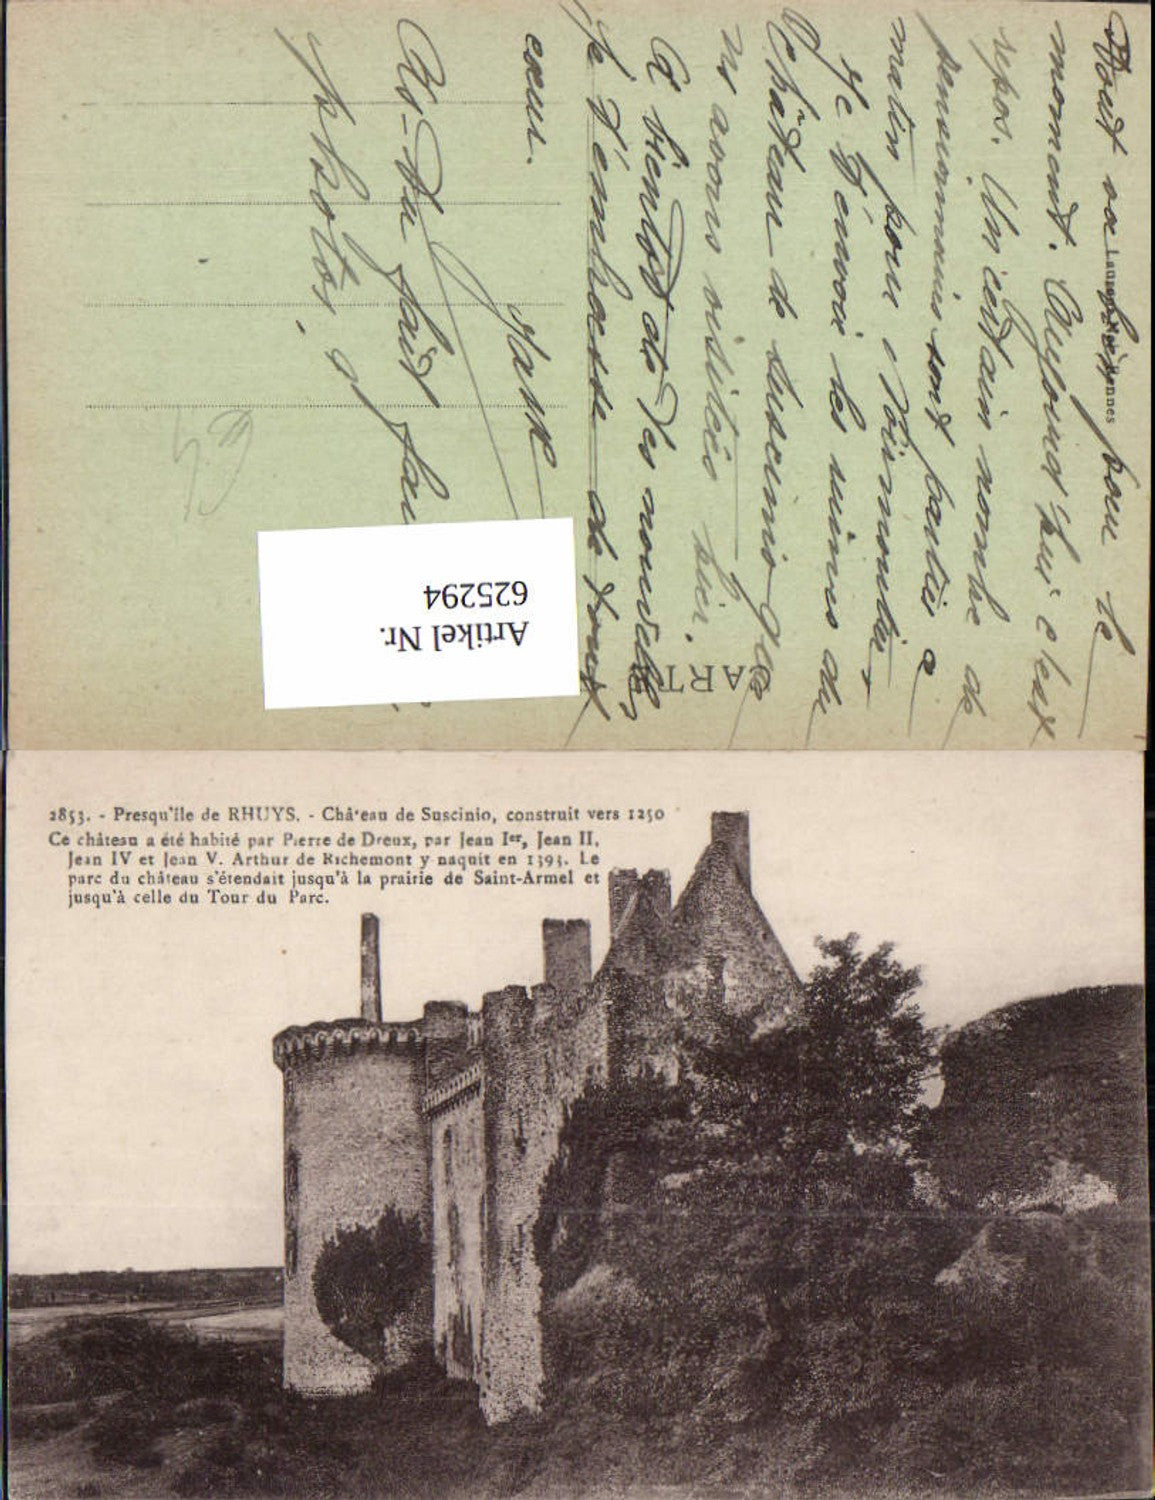 Tout va bien pour le
moment. Aujourd'hui c'est
repos. Un certain nombre de
pensionnaires sont partis ce
matin pour Noirmoutier
Je t'envoie les ruines du
Château de Suscinio que
ns avons visitées hier.
A bientôt de tes nouvelles
Je t'embrasse de tout
cœur.
As-tu fait
photos,
Laurent-Nel Rennes
CART
Artikel Nr.
625294
2853. - Presqu'île de RHUYS. - Château de Suscinio, construit vers 1250
Ce château a été habité par Pierre de Dreux, par Jean Ier, Jean II,
Jean IV et Jean V. Arthur de Richemont y naquit en 1393. Le
parc du château s'étendait jusqu'à la prairie de Saint-Armel et
jusqu'à celle du Tour du Parc.